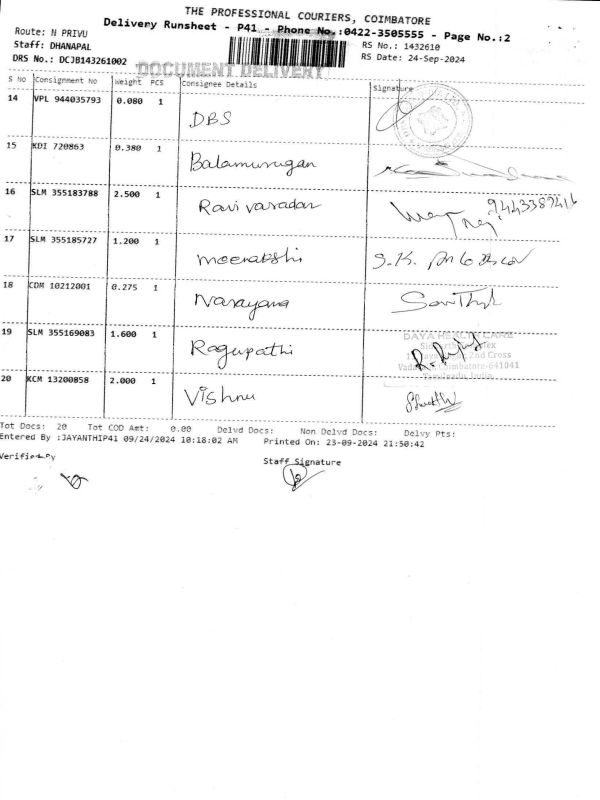 THE PROFESSIONAL COURIERS, COIMBATORE
Delivery Runsheet - P41 - Phone No.:0422-3505555 - Page No.:2
Route: N PRIVU
RS No.: 1432610
Staff: DHANAPAL
RS Date: 24-Sep-2024
DRS No.: DCJB143261002
DOCUMENT DELIVERY
S No Consignment No Weight PCS Consignee Details Signature
14 VPL 944035793 0.080 1 DBS
15 KDI 720863 0.380 1 Balamurugan
16 SLM 355183788 2.500 1 Ravi varadan 9443389416
17 SLM 355185727 1.200 1 meenakshi S.K.
18 CDM 10212001 0.275 1 Narayana
19 SLM 355169083 1.600 1 Ragupathi
DAYA HEALTH CARE
2nd Cross
Coimbatore-641041
Tamilnadu, India
20 KCM 13200858 2.000 1 Vishnu
Tot Docs: 20 Tot COD Amt: 0.00 Delvd Docs: Non Delvd Docs: Delvy Pts:
Entered By :JAYANTHIP41 09/24/2024 10:18:02 AM Printed On: 23-09-2024 21:50:42
Verified By
Staff Signature